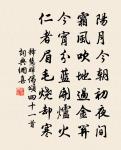 陽月今朝初夜間
霜風吹地過金算
今宵分藍爛爐火
仁者眉毛燒却寒
釋慧暉偈頌四十一首
詞典網喜